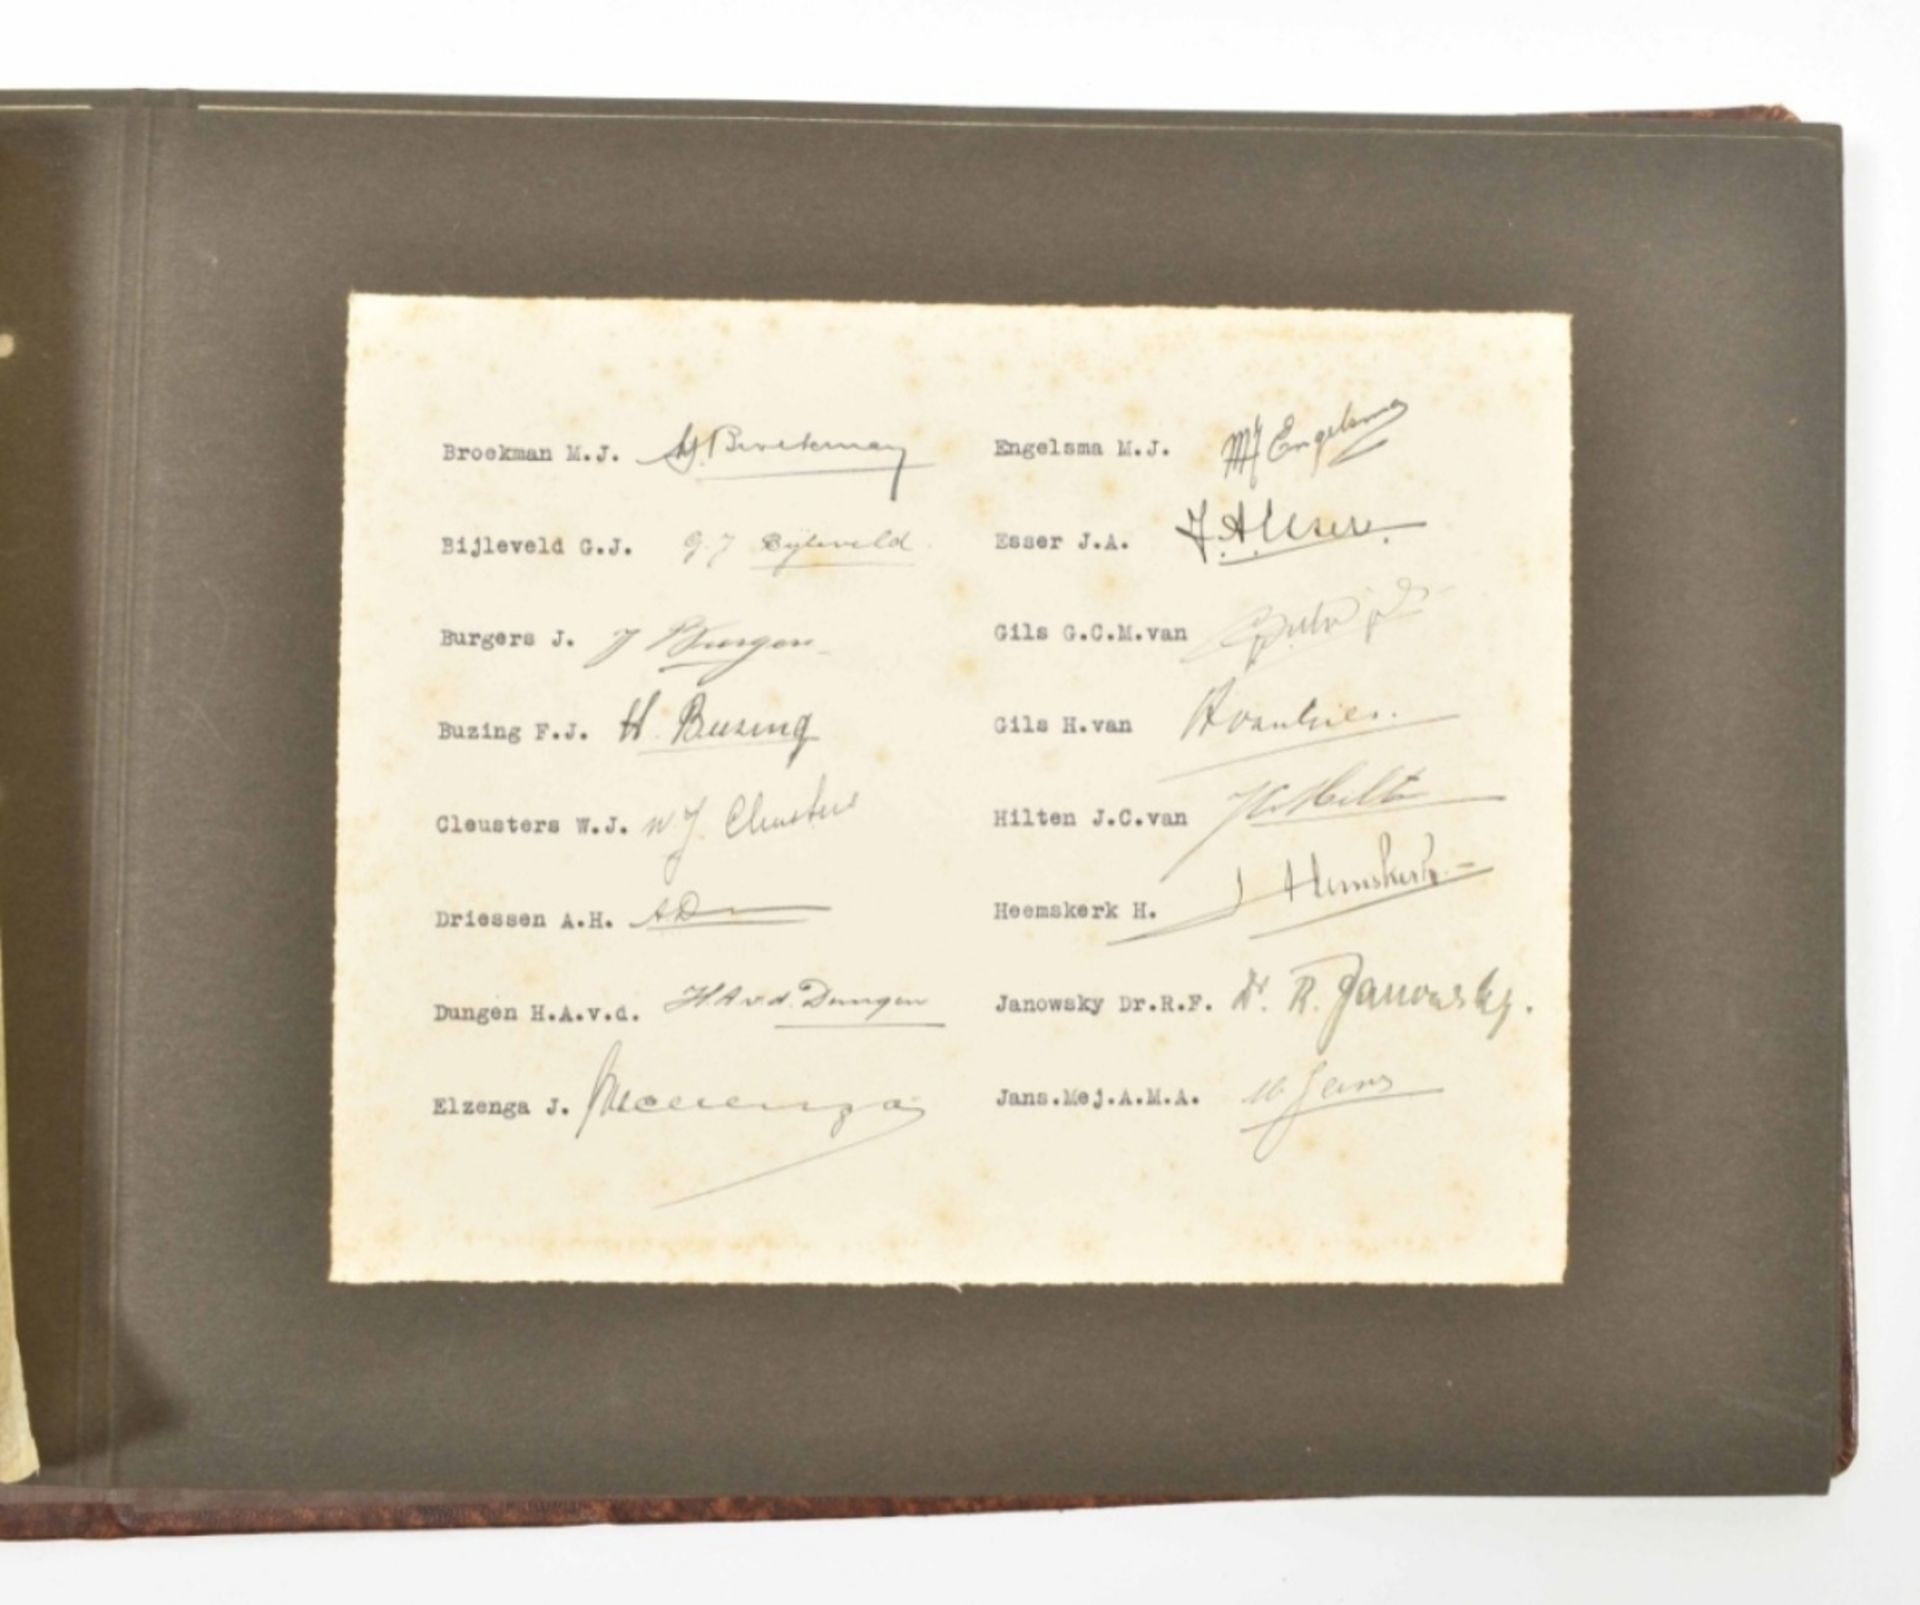 Broekman M.J. MJ. Broekman
Bijleveld G.J. G.J Bijleveld
Burgers J. J Burgers
Buzing F.J. H. Buzing
Cleusters W.J. W J Cleusters
Driessen A.H. A D
Dungen H.A.v.d. H A v.d. Dungen
Elzenga J.
Engelsma M.J. MJ Engelsma
Esser J.A. J.A. Esser
Gils G.C.M.van
Gils H.van H van Gils.
Hilten J.C.van JCv Hilten
Heemskerk H. J Heemskerk
Janowsky Dr.R.F. Dr. R. Janowsky.
Jans.Mej.A.M.A. Jans